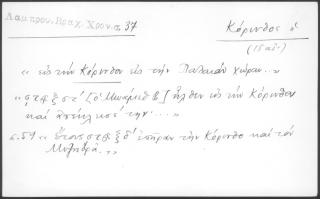 Λάμπρου, Βραχ. Χρον. σ. 37
Κόρινθος ἡ
(15 αἰ.)
« εἰς τὴν Κόρινθον εἰς τὴν Παλαιὰν χώραν...»
« ͵ςϡξς´ [ὁ Μωάμεθ Β´] ἦλθεν εἰς τὴν Κόρινθον
καὶ ἀπέκλεισέ την....»
σ. 59 « Ἔτους ͵ςϡξδ´ ἐπῆραν τὴν Κόρινθο καὶ τὸν
Μυζηθρᾶ.»